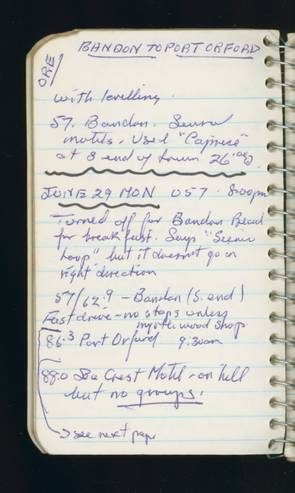 BANDON TO PORT ORFORD
ORE
with levelling.
57. Bandon. Several
motels. Used "Caprice"
at S end of town 26.00
JUNE 29 MON 057 8:00am
Turned off for Bandon Beach
for breakfast. Says "Scenic
Loop" but it doesn't go in
right direction
57/62.9 - Bandon (S. end)
Fast drive - no stops unless
myrtle wood shop.
86.3 Port Orford 9:30am
88.0 Sea Crest Motel - on hill
but no groups.
→ see next page